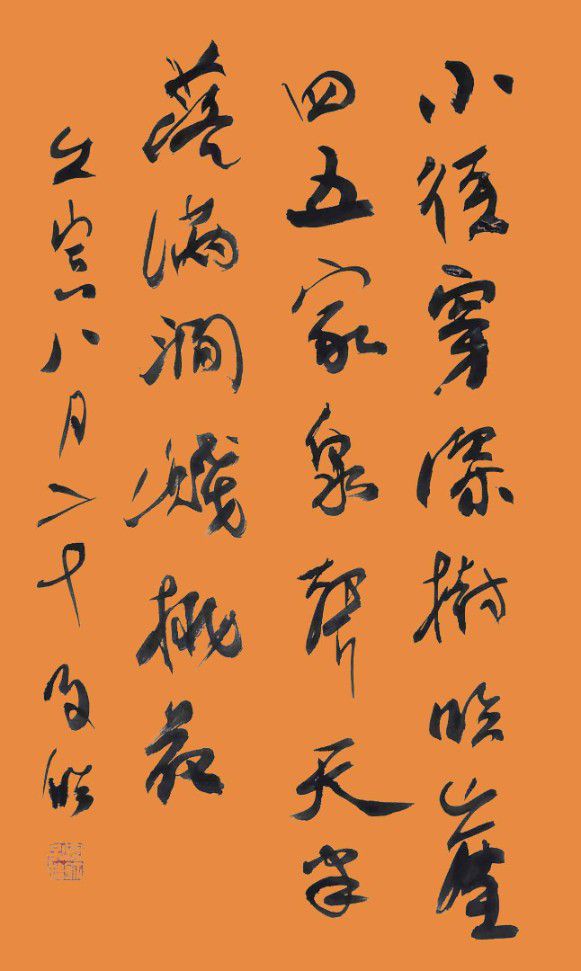 小径穿深树临崖
四五家泉声天半
落满涧溅桃花
文宗八月二十